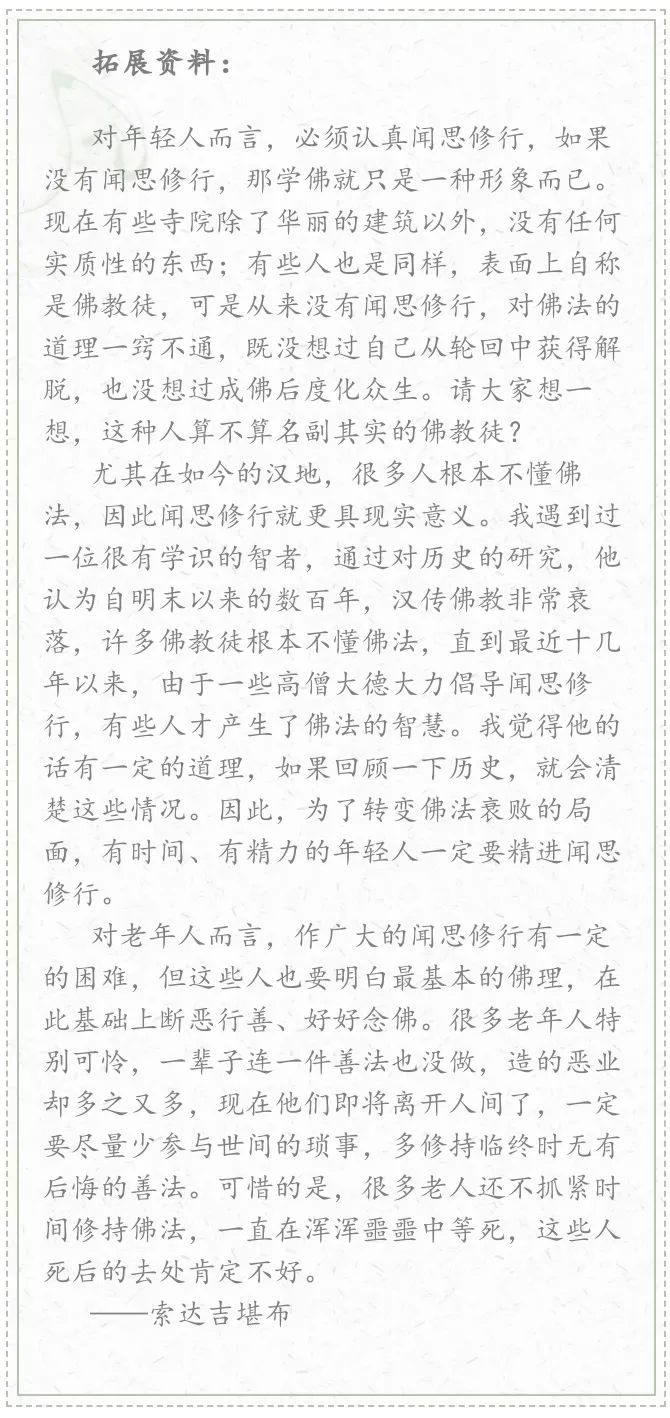 拓展资料：
对年轻人而言，必须认真闻思修行，如果
没有闻思修行，那学佛就只是一种形象而已。
现在有些寺院除了华丽的建筑以外，没有任何
实质性的东西；有些人也是同样，表面上自称
是佛教徒，可是从来没有闻思修行，对佛法的
道理一窍不通，既没想过自己从轮回中获得解
脱，也没想过成佛后度化众生。请大家想一
想，这种人算不算名副其实的佛教徒？
尤其在如今的汉地，很多人根本不懂佛
法，因此闻思修行就更具现实意义。我遇到过
一位很有学识的智者，通过对历史的研究，他
认为自明末以来的数百年，汉传佛教非常衰
落，许多佛教徒根本不懂佛法，直到最近十几
年以来，由于一些高僧大德大力倡导闻思修
行，有些人才产生了佛法的智慧。我觉得他的
话有一定的道理，如果回顾一下历史，就会清
楚这些情况。因此，为了转变佛法衰败的局
面，有时间、有精力的年轻人一定要精进闻思
修行。
对老年人而言，作广大的闻思修行有一定
的困难，但这些人也要明白最基本的佛理，在
此基础上断恶行善、好好念佛。很多老年人特
别可怜，一辈子连一件善法也没做，造的恶业
却多之又多，现在他们即将离开人间了，一定
要尽量少参与世间的琐事，多修持临终时无有
后悔的善法。可惜的是，很多老人还不抓紧时
间修持佛法，一直在浑浑噩噩中等死，这些人
死后的去处肯定不好。
——索达吉堪布